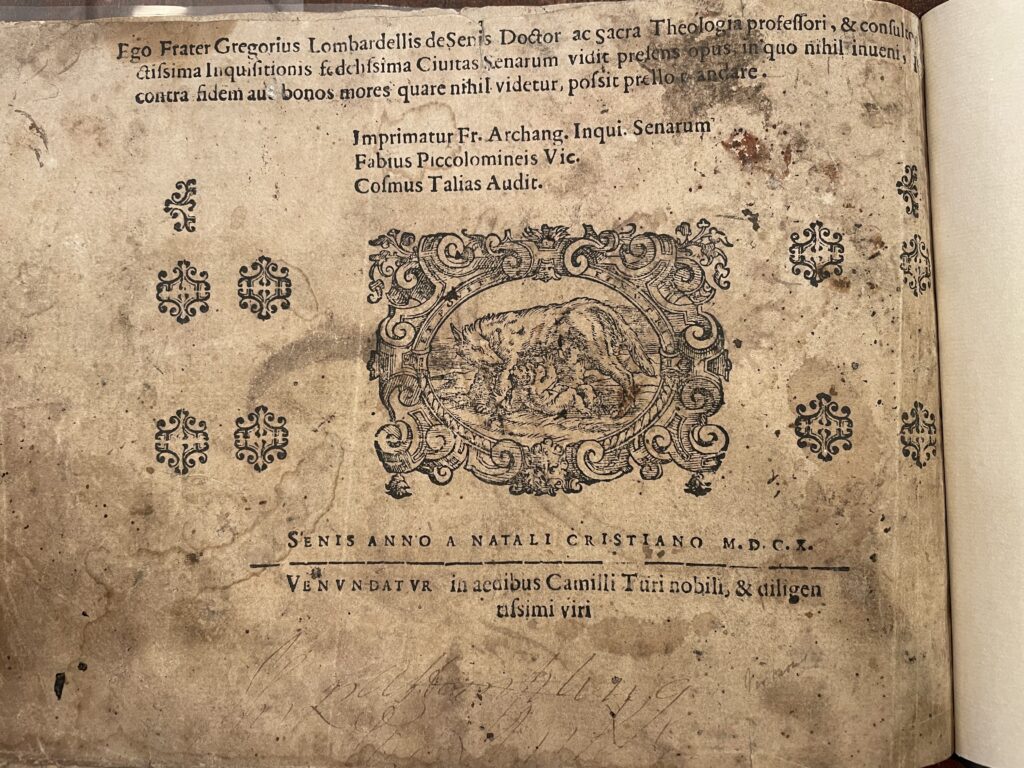 Ego Frater Gregorius Lombardellis de Senis Doctor ac sacra Theologia professori, & consulto
ctissima Inquisitionis fedelissima Ciuitas Senarum vidit presens opus, in quo nihil inueni,
contra fidem aut bonos mores quare nihil videtur, possit prello andare.
Imprimatur Fr. Archang. Inqui. Senarum
Fabius Piccolomineis Vic.
Cosmus Talias Audit.
SENIS ANNO A NATALI CRISTIANO M.D.C.X.
VENVNDATVR in aedibus Camilli Turi nobili, & diligen
tissimi viri